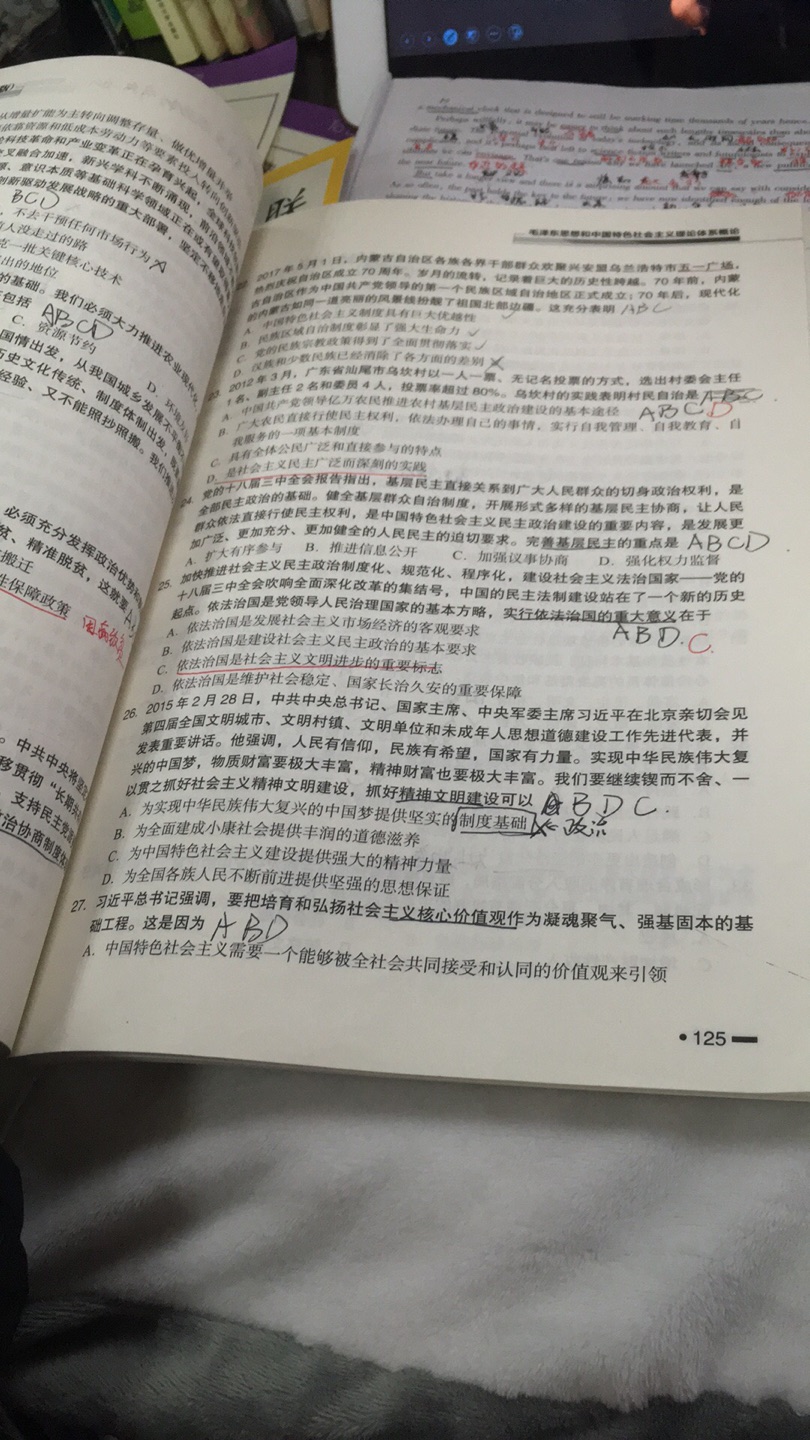 从增量扩能为主转向调整存量、做优增量并举
BCD
，不去干预任何市场行为
前人没走过的路
克一批关键核心技术
出的地位
的基础。我们必须大力推进农业现代化
包括 ABCD
C. 资源节约
国情出发，从我国城乡发展不平衡
历史文化传统、制度体制出发，
经验、又不能照抄照搬。我们
必须充分发挥政治优势和
贫、精准脱贫，这就要
搬迁
生保障政策
。中共中央将坚定
移贯彻“长期共
、支持民主党
治协商制度
毛泽东思想和中国特色社会主义理论体系概论
2017年5月1日，内蒙古自治区各族各界干部群众欢聚兴安盟乌兰浩特市五一广场，
热烈庆祝自治区成立70周年。岁月的流转，记录着巨大的历史性跨越。70年前，内蒙
古自治区作为中国共产党领导的第一个民族区域自治地区正式成立；70年后，现代化
的内蒙古如同一道亮丽的风景线扮靓了祖国北部边疆。这充分表明 ABC
A. 中国特色社会主义制度具有巨大优越性
B. 民族区域自治制度彰显了强大生命力
C. 党的民族宗教政策得到了全面贯彻落实
D. 汉族和少数民族已经消除了各方面的差别
23. 2012年3月，广东省汕尾市乌坎村以一人一票、无记名投票的方式，选出村委会主任
1名，副主任2名和委员4人，投票率超过80%。乌坎村的实践表明村民自治是 ABC
A. 中国共产党领导亿万农民推进农村基层民主政治建设的基本途径 ABCD
B. 广大农民直接行使民主权利，依法办理自己的事情，实行自我管理、自我教育、自
我服务的一项基本制度
C. 具有全体公民广泛和直接参与的特点
D. 是社会主义民主广泛而深刻的实践
24. 党的十八届三中全会报告指出，基层民主直接关系到广大人民群众的切身政治权利，是
全部民主政治的基础。健全基层群众自治制度，开展形式多样的基层民主协商，让人民
群众依法直接行使民主权利，是中国特色社会主义民主政治建设的重要内容，是发展更
加广泛、更加充分、更加健全的人民民主的迫切要求。完善基层民主的重点是 ABCD
A. 扩大有序参与 B. 推进信息公开 C. 加强议事协商 D. 强化权力监督
25. 加快推进社会主义民主政治制度化、规范化、程序化，建设社会主义法治国家——党的
十八届三中全会吹响全面深化改革的集结号，中国的民主法制建设站在了一个新的历史
起点。依法治国是党领导人民治理国家的基本方略，实行依法治国的重大意义在于
A. 依法治国是发展社会主义市场经济的客观要求 ABD.C.
B. 依法治国是建设社会主义民主政治的基本要求
C. 依法治国是社会主义文明进步的重要标志
D. 依法治国是维护社会稳定、国家长治久安的重要保障
26. 2015年2月28日，中共中央总书记、国家主席、中央军委主席习近平在北京亲切会见
第四届全国文明城市、文明村镇、文明单位和未成年人思想道德建设工作先进代表，并
发表重要讲话。他强调，人民有信仰，民族有希望，国家有力量。实现中华民族伟大复
兴的中国梦，物质财富要极大丰富，精神财富也要极大丰富。我们要继续锲而不舍、一
以贯之抓好社会主义精神文明建设，抓好精神文明建设可以 BDC.
A. 为实现中华民族伟大复兴的中国梦提供坚实的制度基础 政治
B. 为全面建成小康社会提供丰润的道德滋养
C. 为中国特色社会主义建设提供强大的精神力量
D. 为全国各族人民不断前进提供坚强的思想保证
27. 习近平总书记强调，要把培育和弘扬社会主义核心价值观作为凝魂聚气、强基固本的基
础工程。这是因为 ABD
A. 中国特色社会主义需要一个能够被全社会共同接受和认同的价值观来引领
•125